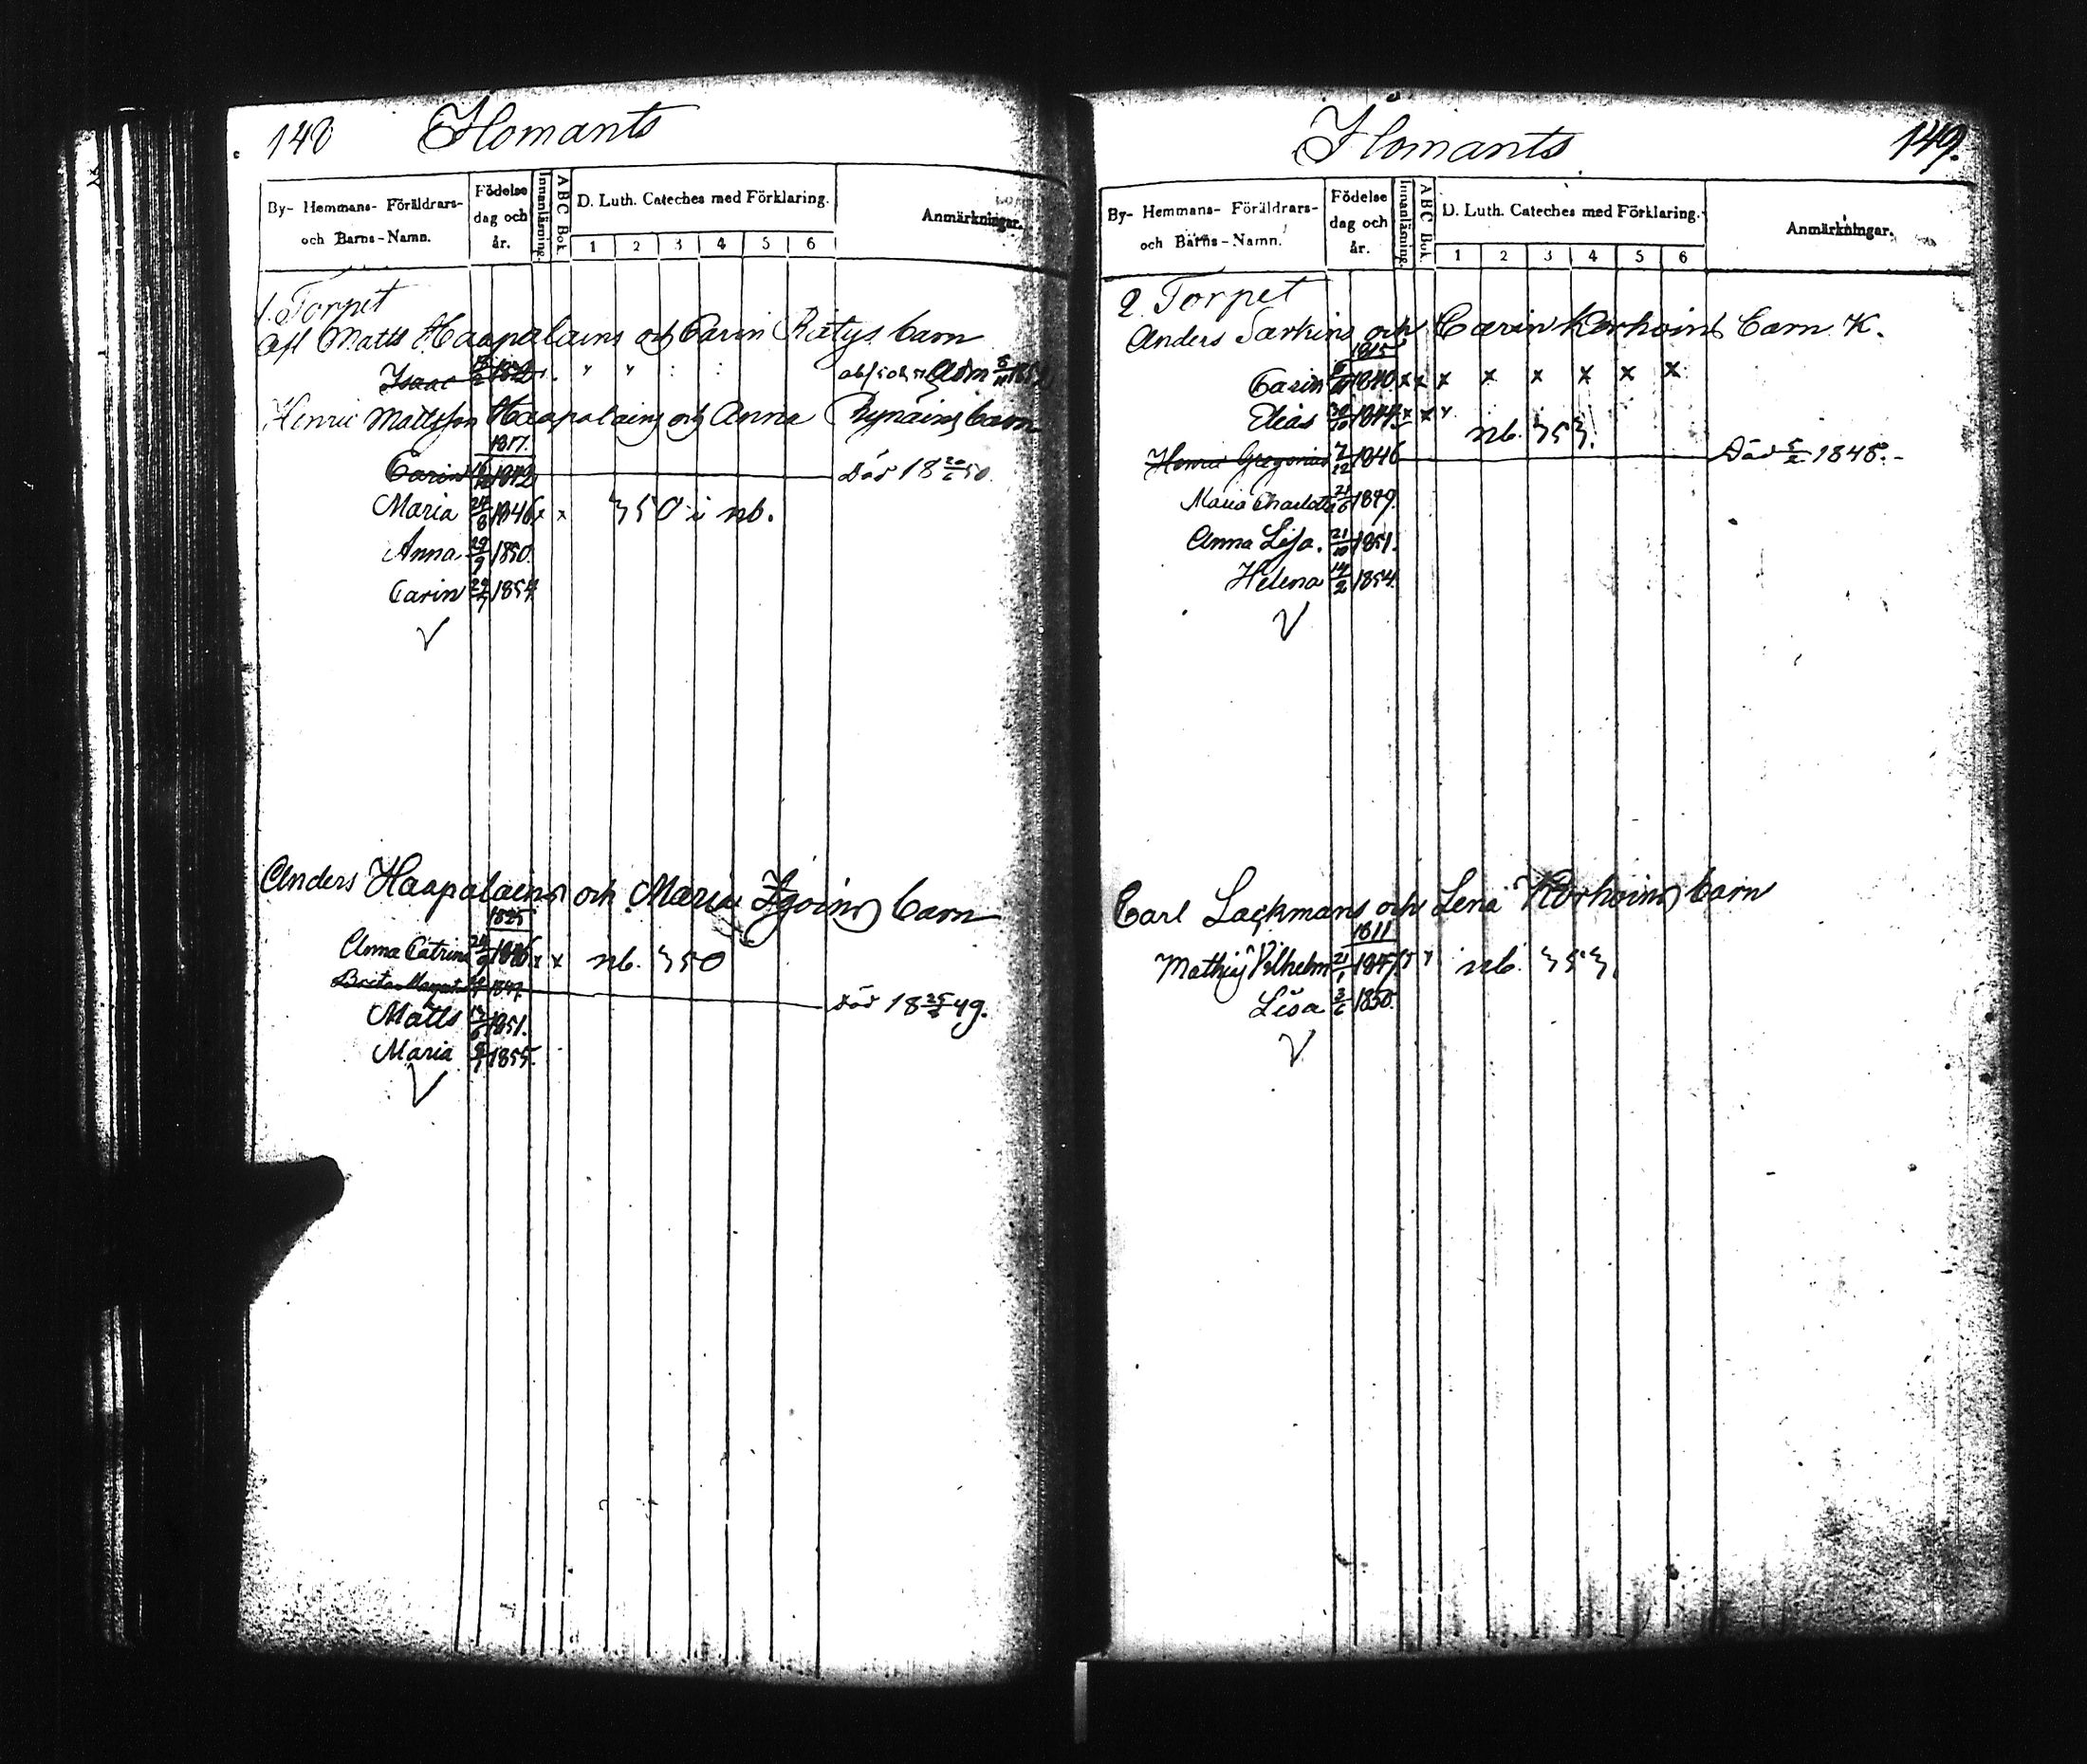 148 Ilomants
By- Hemmans- Föräldrars- och Barns-Namn.
Födelse dag och år.
Innanläsning.
ABC Bok.
D. Luth. Cateches med Förklaring.
1 2 3 4 5 6
Anmärkningar.
1. Torpet
Afl Matts Haapalains och Carin Rätys barn
Isaac
Henric Mattsson Haapalains och Anna barn
1817.
Carin 1842 Död 18 20/6 50.
Maria 24/8 1846 x x 50 i nb.
Anna 29/9 1850.
Carin 22/7 1854.
Anders Haapalains och Maria Igoins barn
1825
Anna Catrina 1846 x x nb. 50
Brita 1849. Död 18 49.
Matts 1851.
Maria 1855.
Ilomants 149.
By- Hemmans- Föräldrars- och Barns-Namn.
Födelse dag och år.
Innanläsning.
ABC Bok.
D. Luth. Cateches med Förklaring.
1 2 3 4 5 6
Anmärkningar.
2. Torpet
Anders Sarkins och Carin Korhoins Barn K.
1815
Carin 1840 x x x x x x x x
Elias 30/10 1844 x x
nb. 5
Henric Gregorius 7/12 1846 Död 5/2 1848.
Maria Charlotta 1849.
Anna Lisa. 21/10 1851.
Helena 14/2 1854.
Carl Lackmans och Lena Korhoins barn
1811
Mathias Vilhelm 21/1 1847 nb. 5
Lisa 3/6 1850.